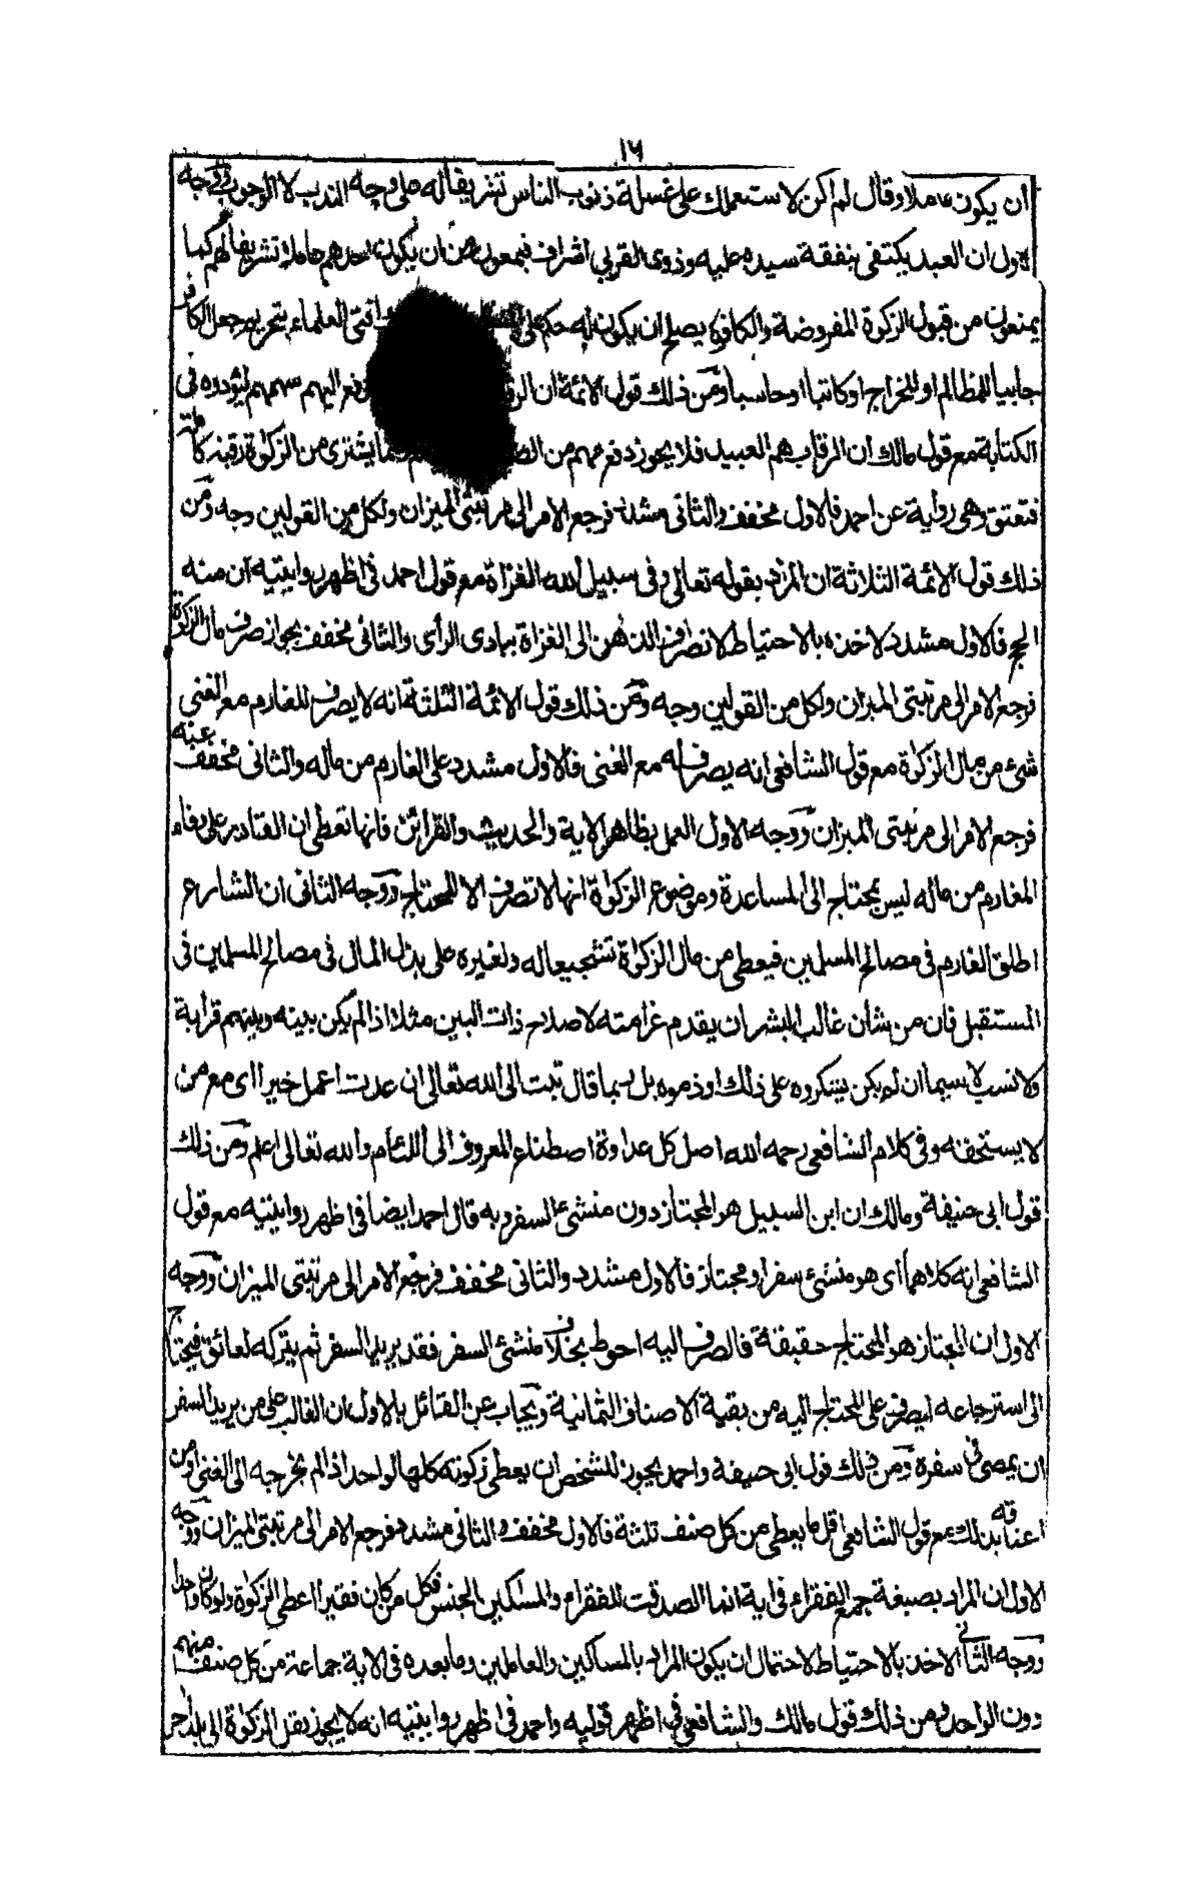 ١٦
أن يكون عاملا وقال لم اكن لاستعملك على غسلة ذنوب الناس تشريفا له على وجه الندب لا الوجوب ووجه
الاول ان العبد يكتفى بنفقة سيده عليه وذوى القربي اشراف فيمعون من ان يكون احدهم عاملا تشريفا لهم كما
يمنعون من قبول الزكوة المفروضة والكافر لا يصلح ان يكون له حكم على افتى العلماء بتحريم جعل الكافر
جابيا للمظالم او للخراج او كاتبا او حاسبا ومن ذلك قول الائمة ان الرقاب دفع اليهم سهمهم ليؤدوه فى
الكتابة مع قول مالك ان الرقاب هم العبيد فلا يجوز دفع سهم من يشترى من الزكوة رقبة كاملة
فتعتق وهى رواية عن احمد فالاول مخفف والثانى مشدد فرجع الامر الى مرتبتى الميزان ولكل من القولين وجه ومن
ذلك قول الائمة الثلاثة ان المراد بقوله تعالى وفى سبيل الله الغزاة مع قول احمد فى اظهر روايتيه ان منه
الحج فالاول مشدد لاخذه بالاحتياط لانصراف الذهن الى الغزاة ببادى الرأى والثانى مخفف بجواز صرف مال الزكوة
فرجع الامر الى مرتبتى الميزان ولكل من القولين وجه ومن ذلك قول الائمة الثلثة انه لا يصرف للغارم مع الغنى
شئ من مال الزكوة مع قول الشافعى انه يصرف له مع الغنى فالاول مشدد على الغارم من ماله والثانى مخفف عنه
فرجع الامر الى مرتبتى الميزان ووجه الاول العمل بظاهر الاية والحديث والقرائن فانها تعطى ان القادر على وفاء
المغارم من ماله ليس بمحتاج الى المساعدة وموضوع الزكوة انها لا تصرف الا للمحتاج ووجه الثانى ان الشارع
اطلق الغارم فى مصالح المسلمين فيعطى من مال الزكوة تشجيعا له ولغيره على بذل المال فى مصالح المسلمين فى
المستقبل فان من شأن غالب البشر ان يقدم غرامته لاصلاح ذات البين مثلا اذا لم يكن بينه وبينهم قرابة
ولا نسب لا سيما ان لم يكن يشكروه على ذلك او ذموه بل ربما قال تبت الى الله تعالى ان عدت اعمل خيرا اى مع من
لا يستحقه وفى كلام الشافعى رحمه الله اصل كل عداوة اصطناع المعروف الى اللئام والله تعالى اعلم ومن ذلك
قول ابى حنيفة ومالك ان ابن السبيل هو المجتاز دون منشئ السفر وبه قال احمد ايضا فى اظهر روايتيه مع قول
الشافعى انه كلاهما اى هو منشئ سفر او مجتاز فالاول مشدد والثانى مخفف فرجع الامر الى مرتبتى الميزان ووجه
الاول ان المجتاز هو المحتاج حقيقة فالصرف اليه احوط بخلاف منشئ السفر فقد يريد السفر ثم يتركه لعائق فيحتاج
الى استرجاعه ليصرف على المحتاج اليه من بقية الاصناف الثمانية ويجاب عن القائل بالاول ان الغالب على من يريد السفر
ان يمضى فى سفره ومن ذلك قول ابى حنيفة واحمد يجوز للشخص ان يعطى زكوته كلها لواحد اذا لم يخرجه الى الغنى ومن
اعناقه بذلك مع قول الشافعى اقل ما يعطى من كل صنف ثلثة فالاول مخفف والثانى مشدد فرجع الامر الى مرتبتى الميزان ووجه
الاول ان المراد بصيغة جمع الفقراء فى اية انما الصدقت للفقراء والمساكين الجنس فكل من كان فقيرا اعطى الزكوة ولو كان واحدا
ووجه الثانى الاخذ بالاحتياط لاحتمال ان يكون المراد بالمساكين والعاملين وما بعده فى الاية جماعة من كل صنف منهم
دون الواحد ومن ذلك قول مالك والشافعى فى اظهر قوليه واحمد فى اظهر روايتيه انه لا يجوز نقل الزكوة الى بلد اخر